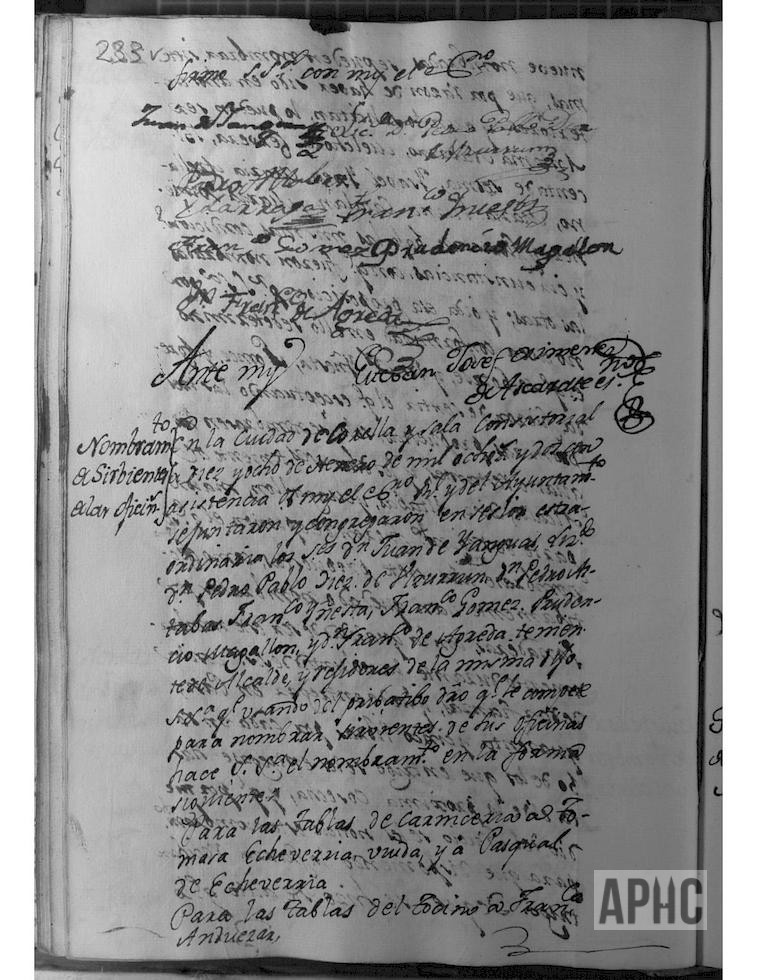 283
firme s.s. con mi el essno
Juan de Yanguas
Xarragas Fran.co Ynesta
Fran.co Gomez Prudencio Magallon
Dn Fran.co de Agreda
Ante my
Esteban Josef Ximenez
de Ascarate es.no
Nombram.to
de Sirbientes
de las oficin.s
En la Ciudad de Corella y sala Consistorial
a diez y ocho de Henero de mil ochos.s y dos con
asistencia de my el es.no R.l y del Ayuntam.to
se juntaron y congregaron en sesion estra-
ordinaria los Ses. dn Juan de Yanguas
dn Pedro Pablo Diez de Ulzurrun, dn Pedro At-
tabas, Fran.co Ynesta, Fran.co Gomez, Pruden-
cio Magallon, y dn Fran.co de Agreda, tenien-
te de Alcalde, y rejidores de la misma
q.e usando del pribatibo dro q.e le compete
para nombrar sirvientes de sus oficinas
hace S. S.a el nombram.to en la forma
siguiente
Para las tablas de carniceria a To-
masa Echeverria, viuda, y a Pasqual
de Echeverria
Para las tablas del tocino a Fran.co
Andueza,
APHC